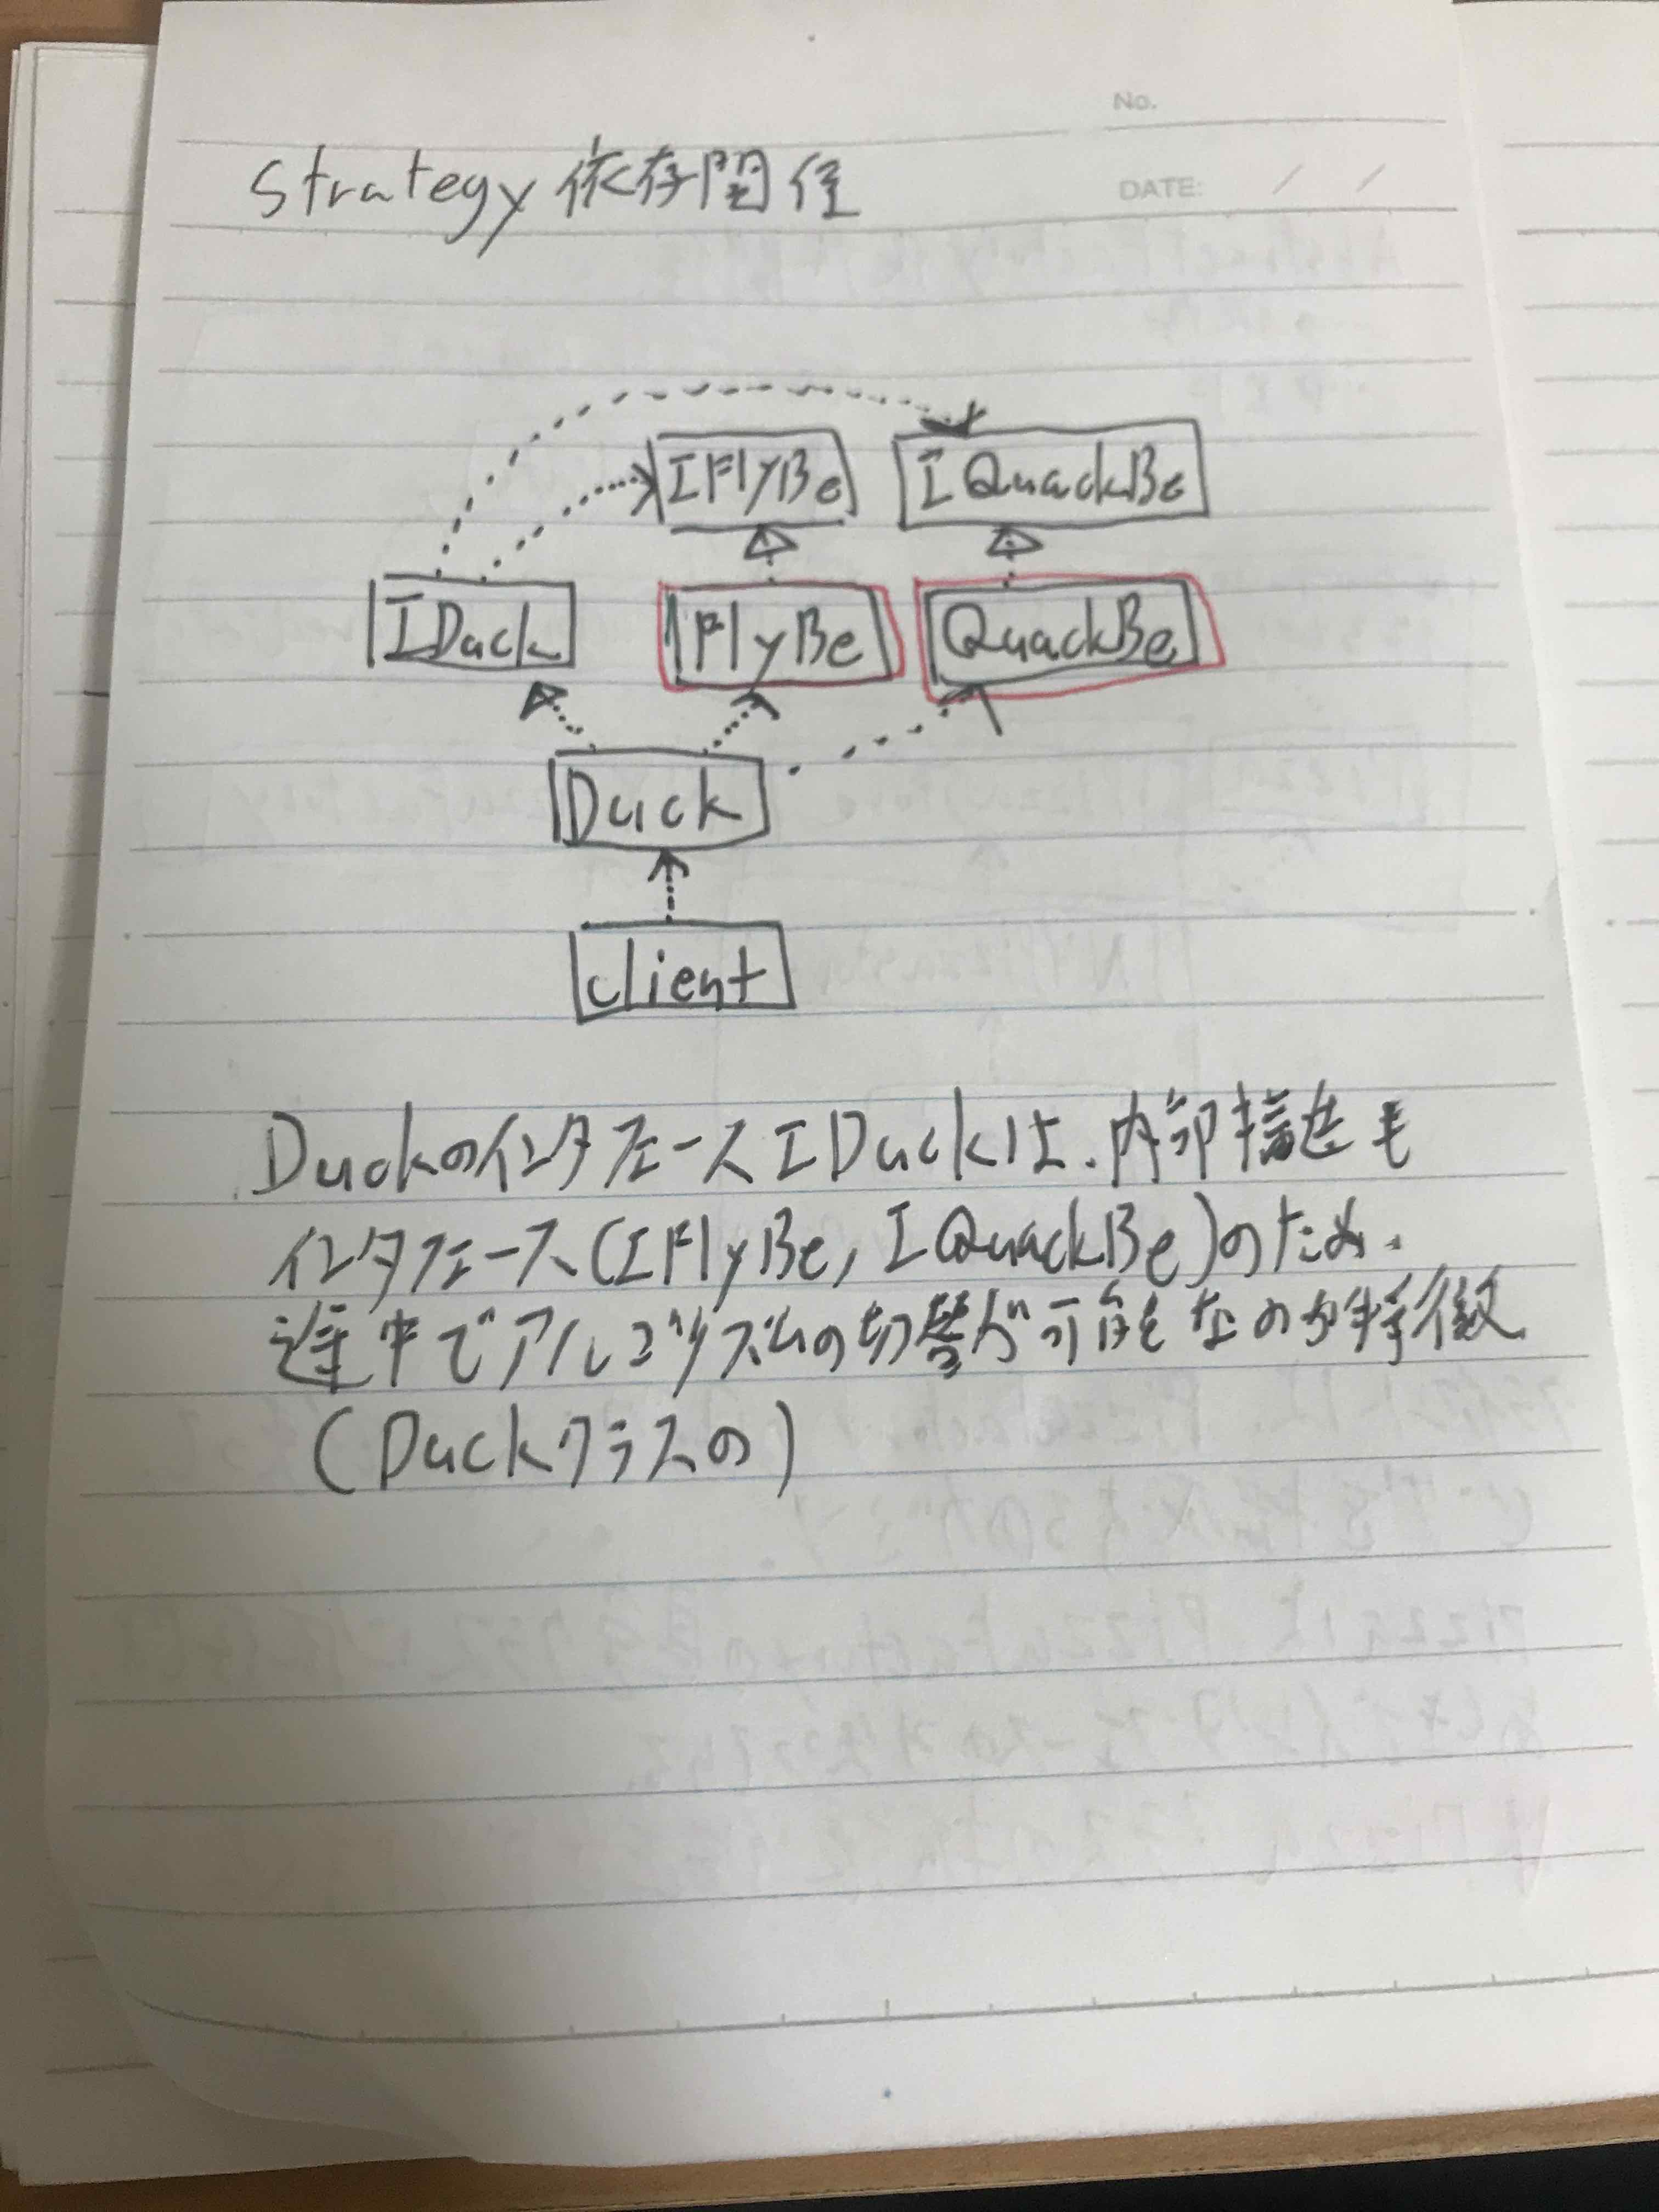 No.
DATE: / /
Strategy 依存関係
IFlyBe IQuackBe
IDuck FlyBe QuackBe
Duck
client
DuckのインタフェースIDuckは、内部構造も
インタフェース(IFlyBe, IQuackBe)のため、
途中でアルゴリズムの切替が可能なのが特徴
(Duckクラスの)